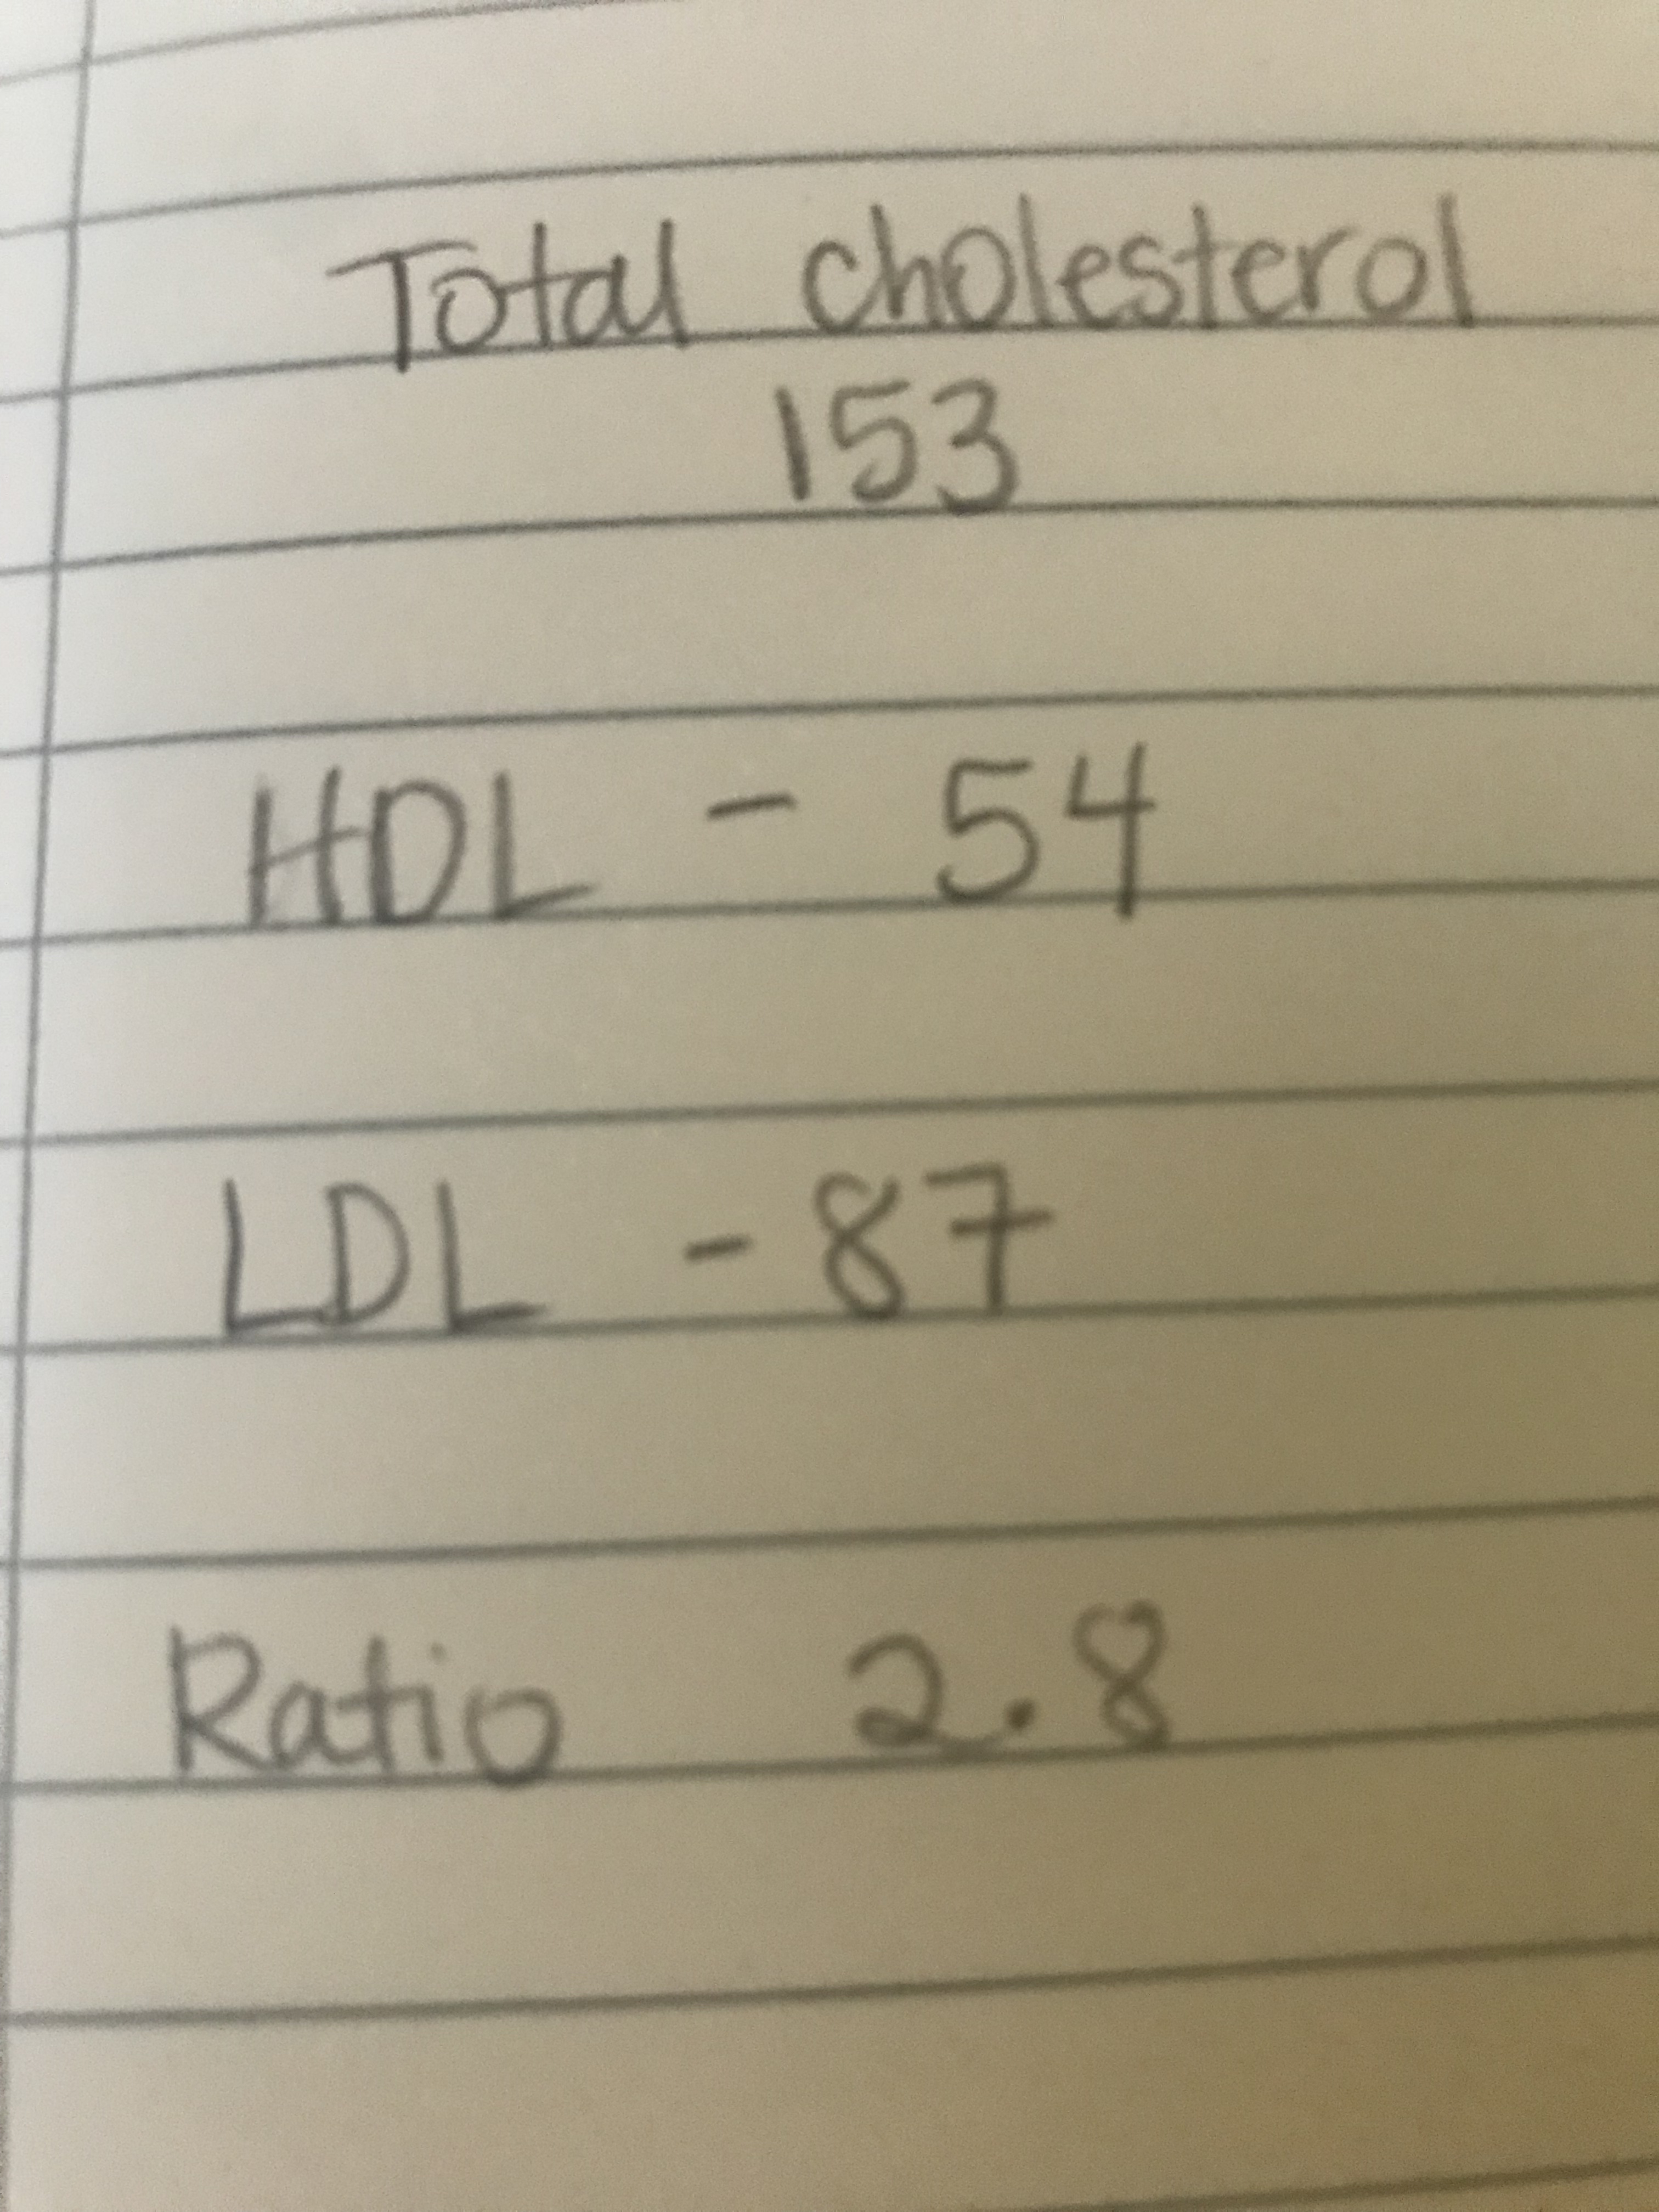 Total cholesterol
153
HDL - 54
LDL - 87
Ratio 2.8